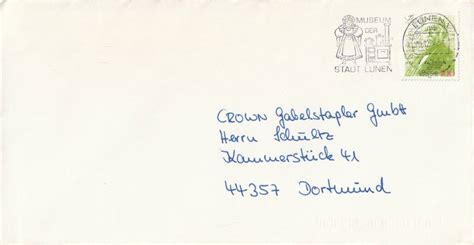 MUSEUM
DER
STADT LÜNEN
LÜNEN
CROWN Gabelstapler GmbH
Herrn Schultz
Kammerstück 41
44357 Dortmund